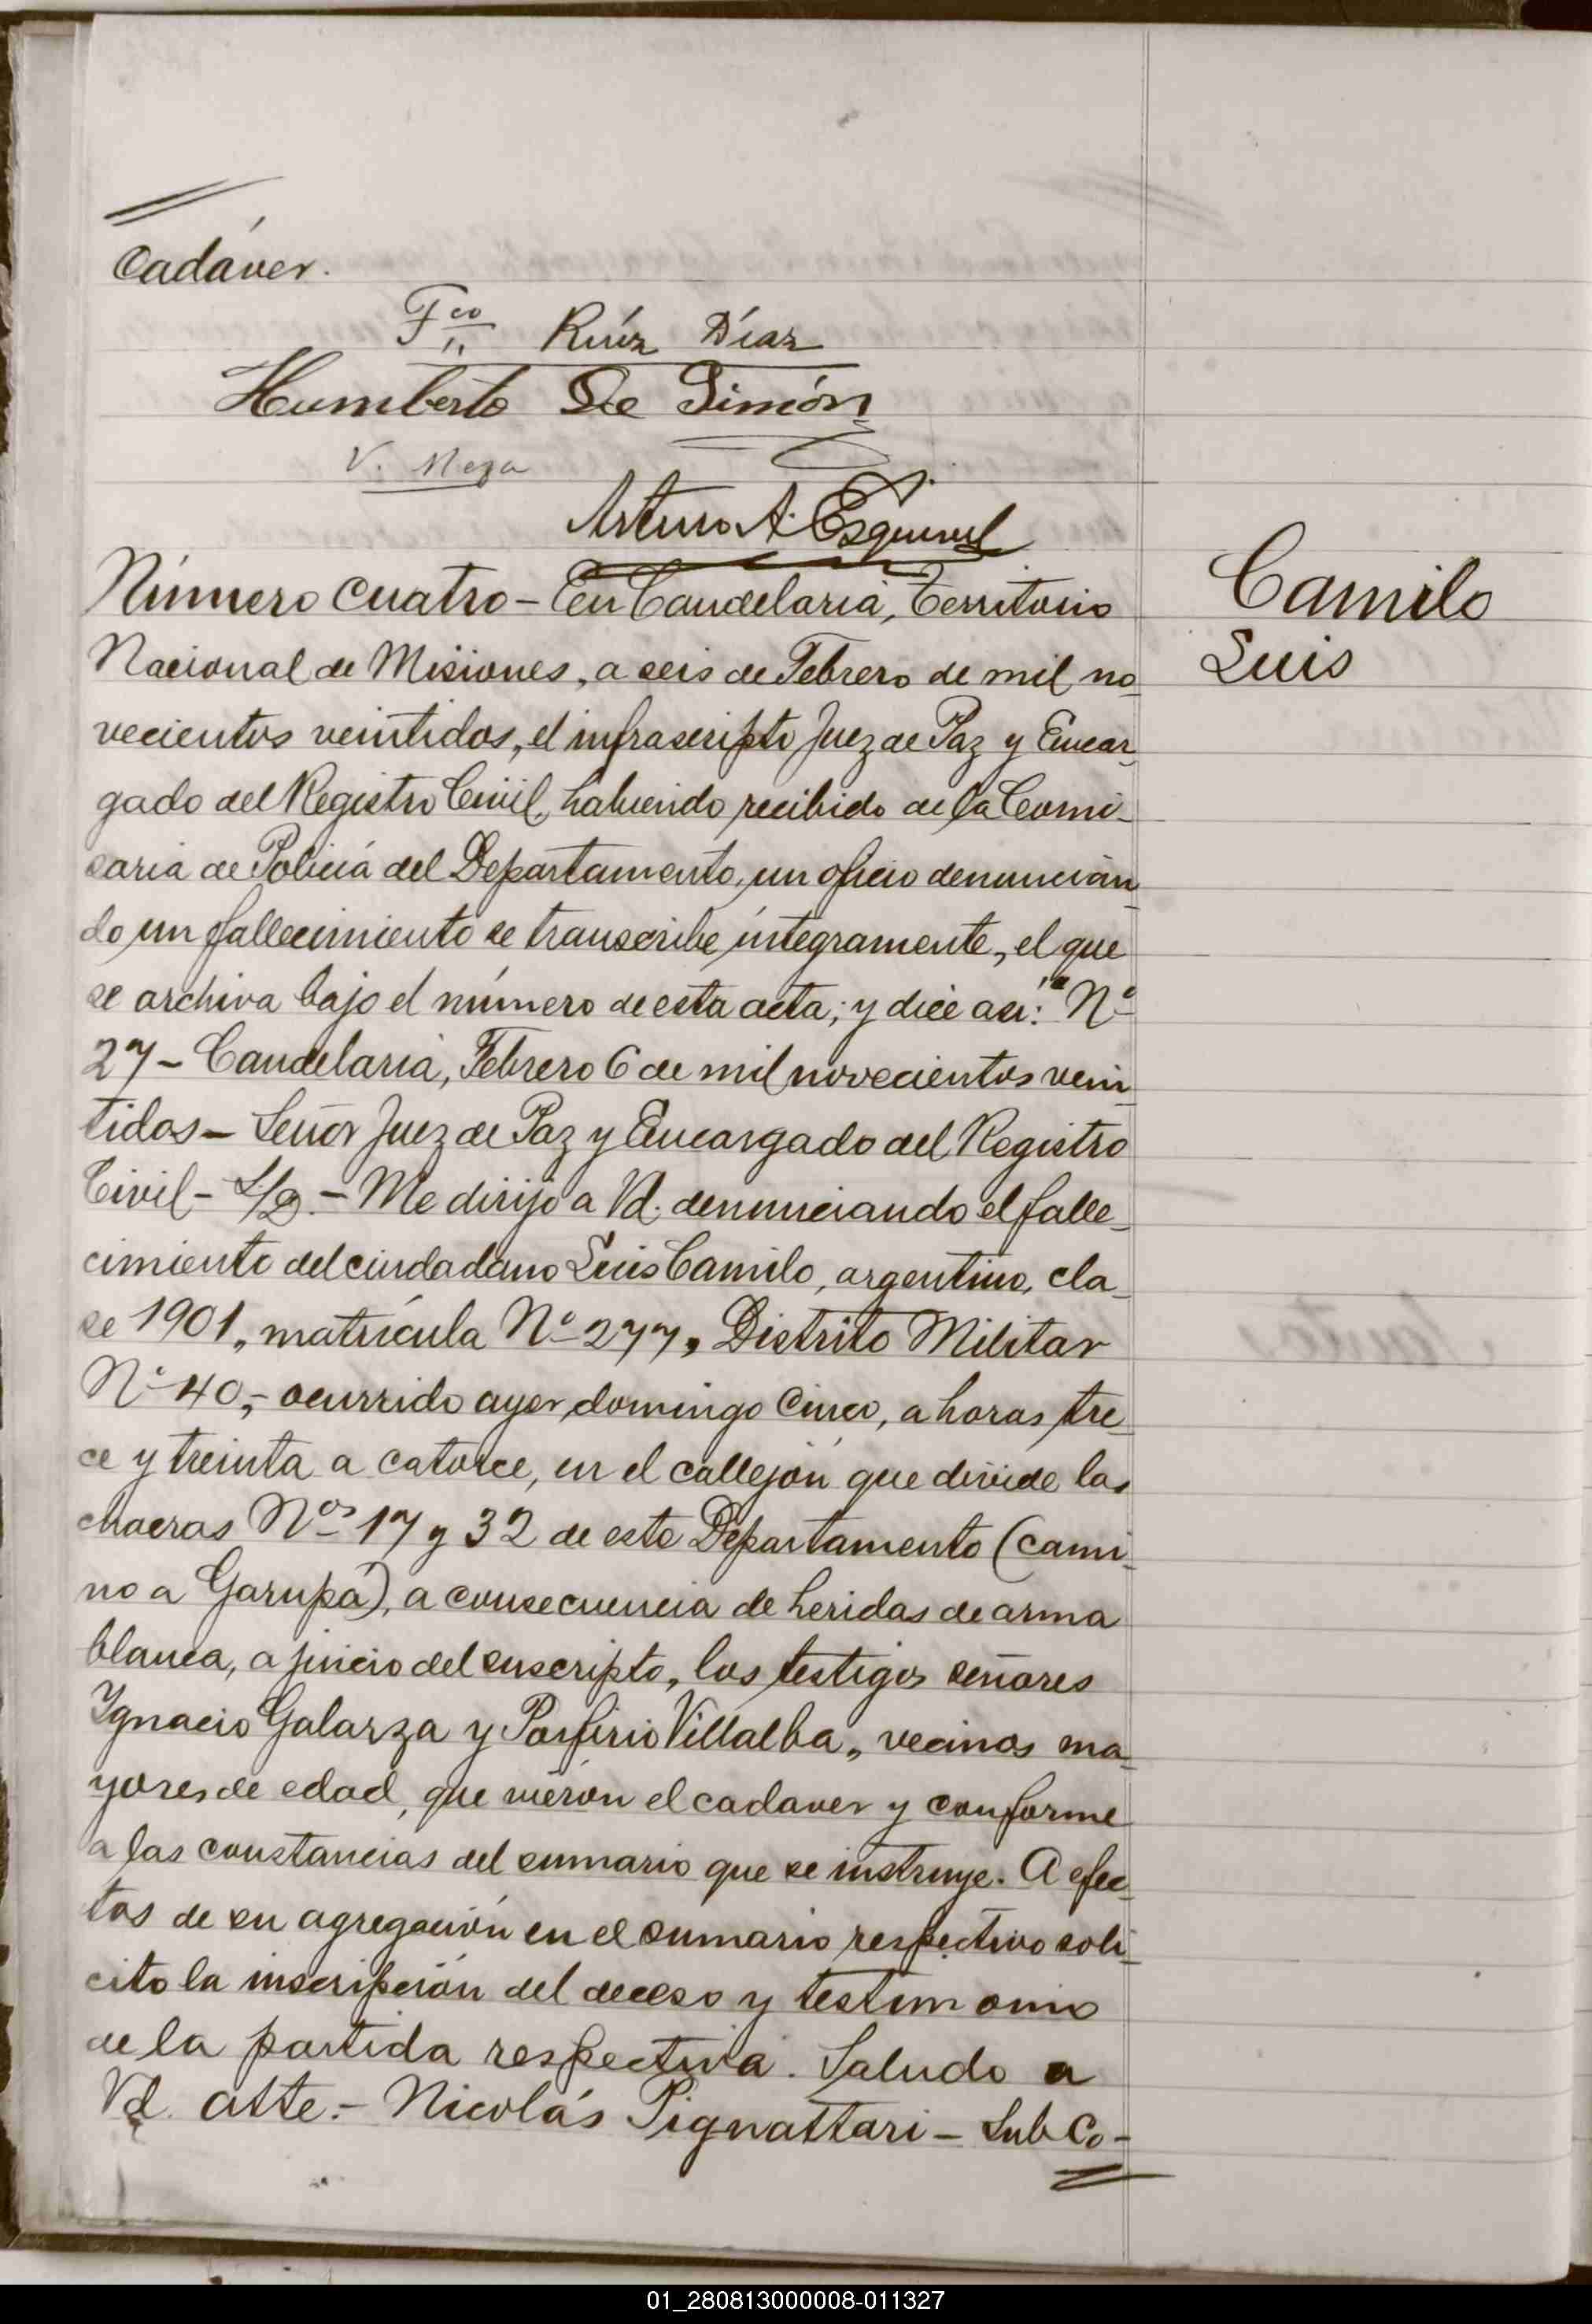 Cadáver.
Fco Ruíz Díaz
Humberto De Simón
V. Meza
Arturo A. Esquivel
Número cuatro - En Candelaria, Territorio
Camilo
Nacional de Misiones, a seis de Febrero de mil no
Luis
vecientos veintidos, el infrascripto Juez de Paz y Encar
gado del Registro Civil, habiendo recibido de la Comi-
saria de Policía del Departamento, un oficio denuncián
do un fallecimiento se transcribe íntegramente, el que
se archiva bajo el número de esta acta; y dice asi: "Nº
27 - Candelaria, Febrero 6 de mil novecientos vein
tidos - Señor Juez de Paz y Encargado del Registro
Civil - S/D. - Me dirijo a Vd. denunciando el falle
cimiento del ciudadano Luis Camilo, argentino, cla
se 1901, matrícula Nº 277, Distrito Militar
Nº 40, - ocurrido ayer domingo cinco, a horas tre
ce y treinta a catorce, en el callejón que divide las
chacras Nos 17 y 32 de este Departamento (cami
no a Garupá), a consecuencia de heridas de arma
blanca, a juicio del suscripto, los testigos señores
Ignacio Galarza y Porfirio Villalba, vecinos ma
yores de edad, que vieron el cadaver y conforme
a las constancias del sumario que se instruye. A efec
tos de su agregación en el sumario respectivo soli
cito la inscripción del deceso y testimonio
de la partida respectiva. Saludo a
Vd. atte. - Nicolás Pignattari - Sub Co-
01_280813000008-011327